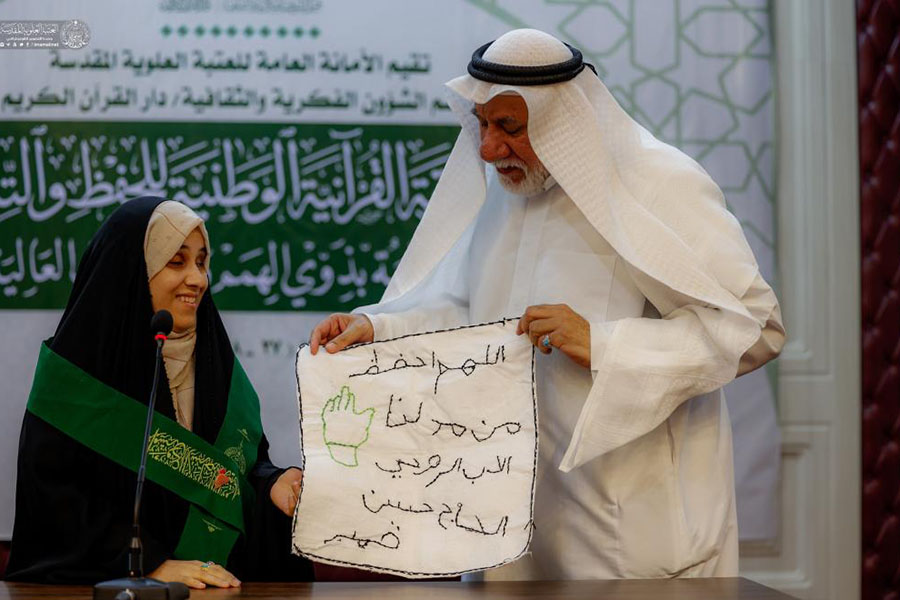 العتبة العلوية المقدسة
تقيم الأمانة العامة للعتبة العلوية المقدسة
سم الشؤون الفكرية والثقافية/ دار القرآن الكريم
القرآنية الوطنية للحفظ والت
بذوي الهمم العالية
اللهم احفظ
من مد لنا
الاب الروحي
الحاج حسين